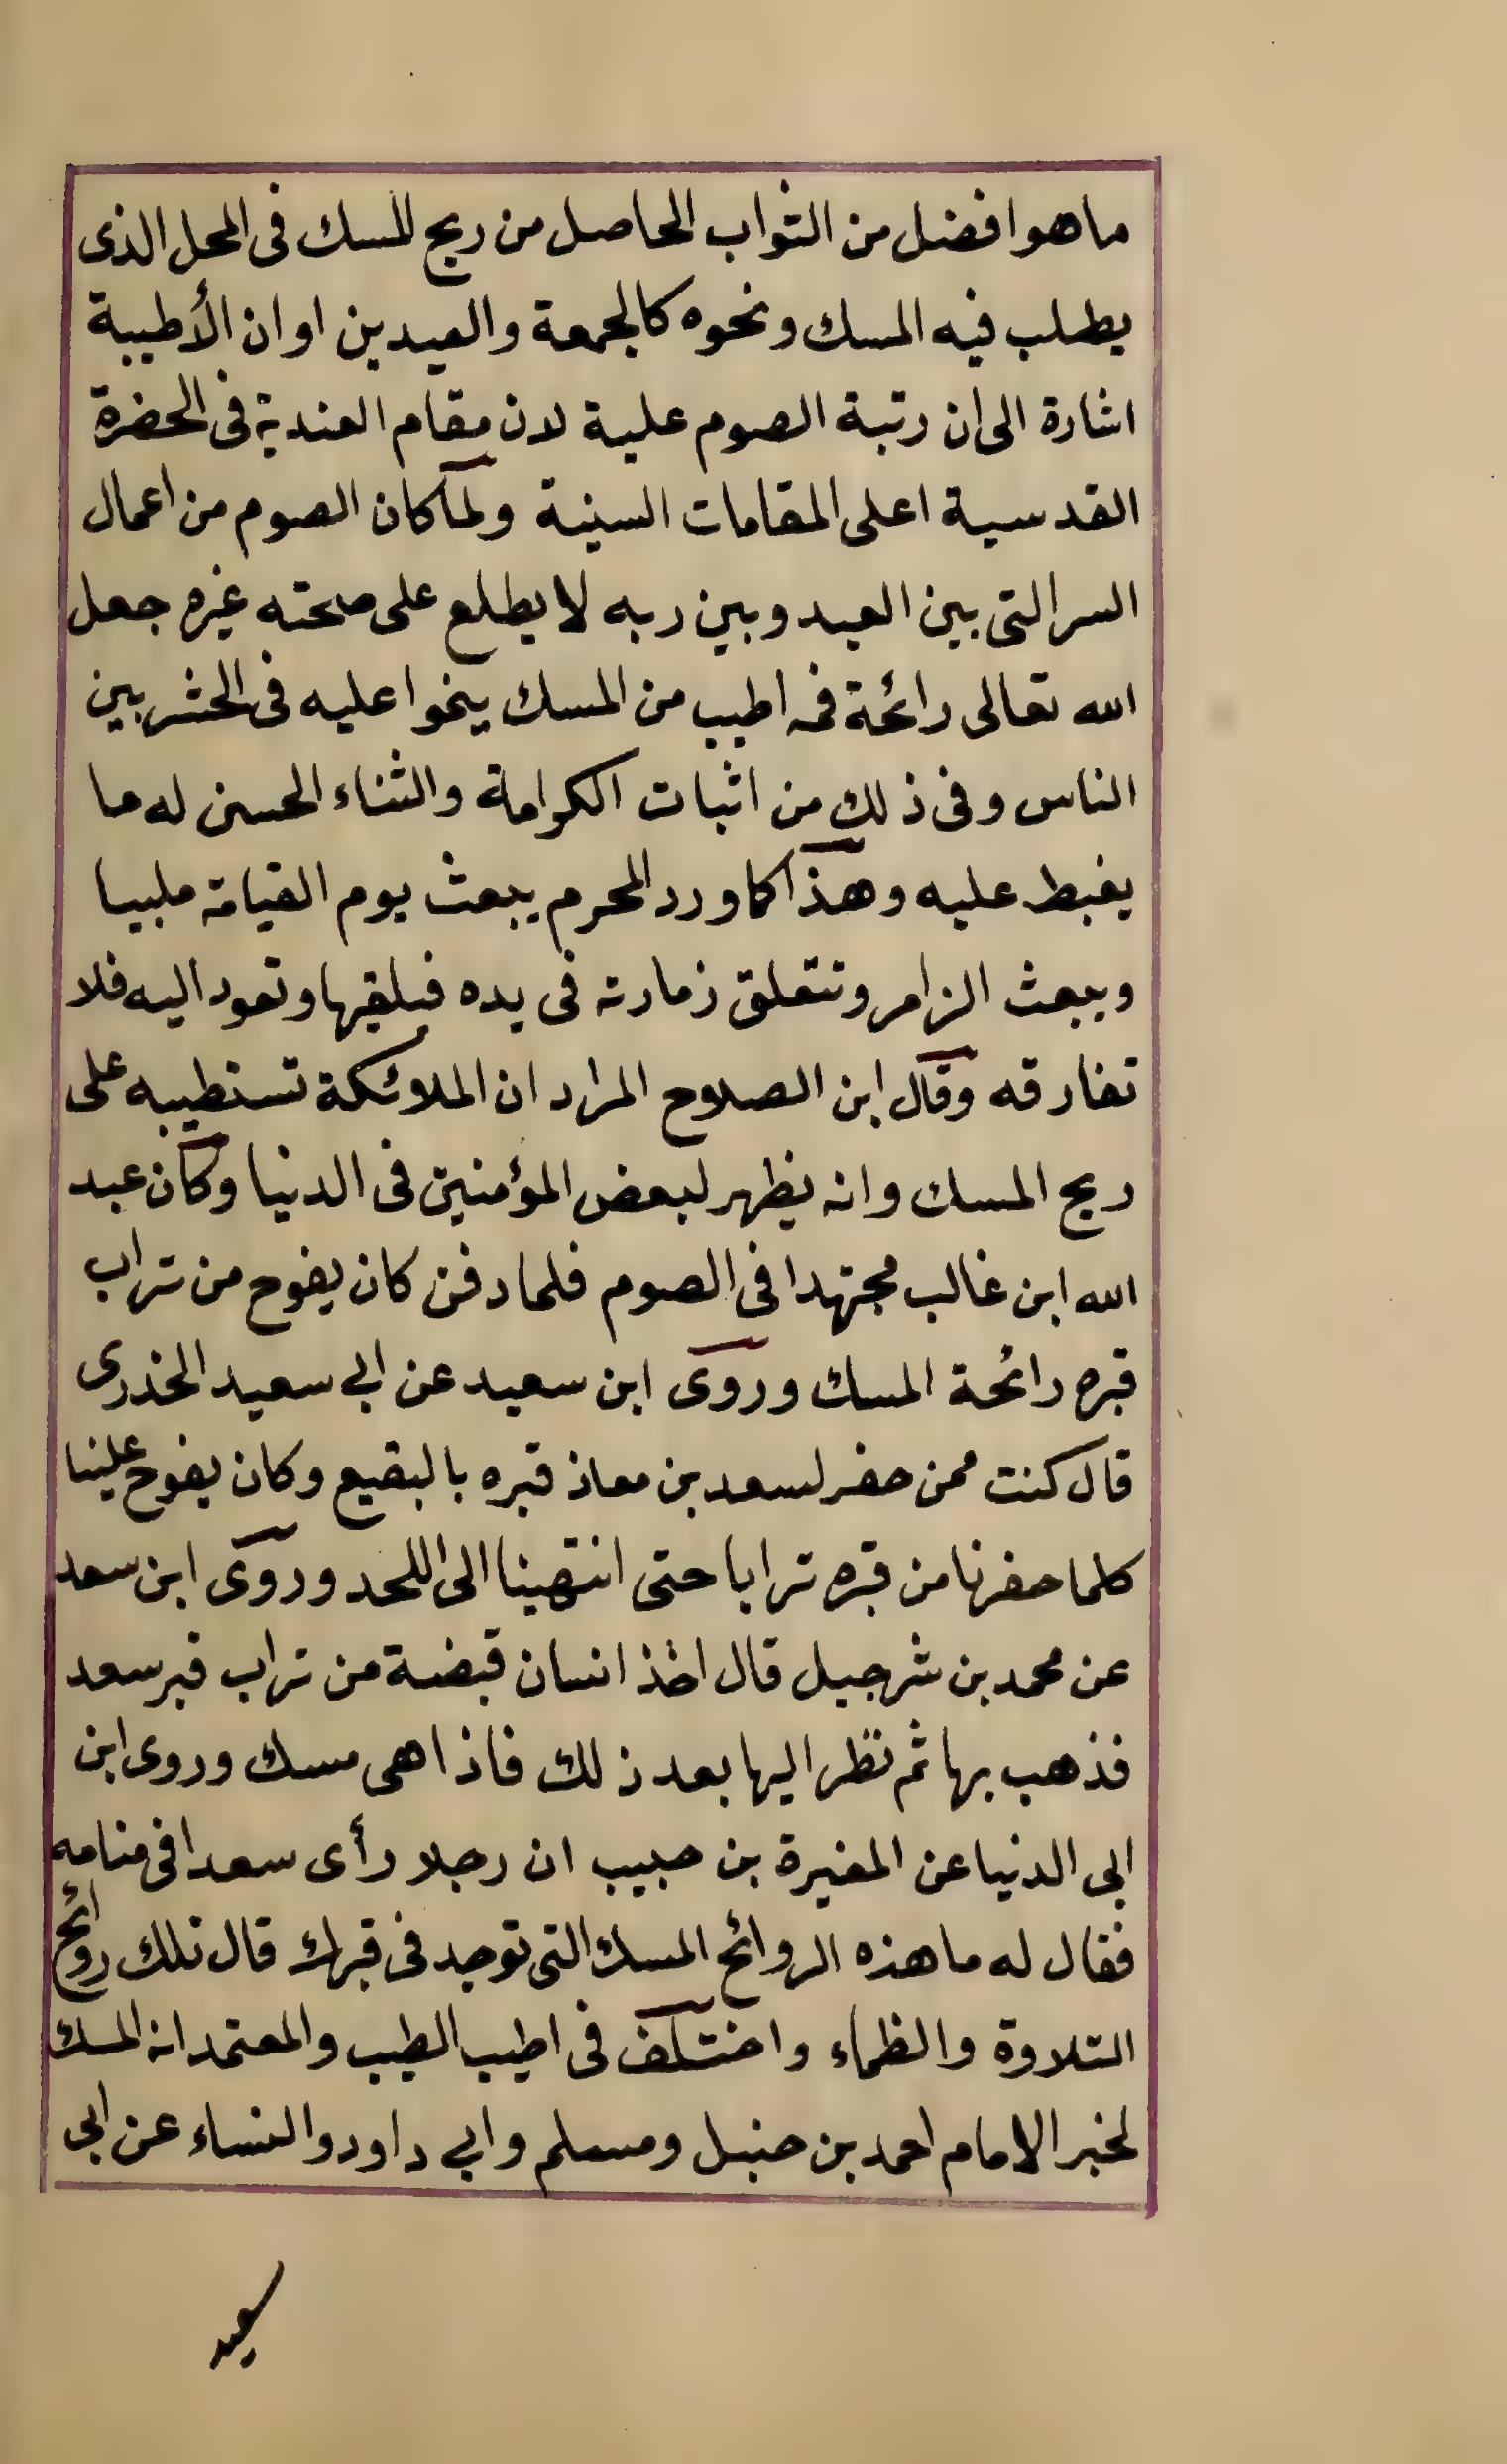 ما هو افضل من الثواب الحاصل من ريح المسك فى المحل الذى
يطلب فيه المسك ونحوه كالجمعة والعيدين او ان الأطيبة
اشارة الى ان رتبة الصوم علية لان مقام العندية فى الحضرة
القدسية اعلى المقامات السنية ولما كان الصوم من اعمال
السر التى بين العبد وبين ربه لا يطلع على صحته غيره جعل
الله تعالى رائحة فمه اطيب من المسك ينموا عليه فى الحشر بين
الناس وفى ذلك من اثبات الكرامة والثناء الحسن له ما
يغبط عليه وهذا كما ورد المحرم يبعث يوم القيامة ملبيا
ويبعث الزامر وتتعلق زمارته فى يده فيلقيها وتعود اليه فلا
تفارقه وقال ابن الصلاح المراد ان الملائكة تستطيبه على
ريح المسك وانه يظهر لبعض المؤمنين فى الدنيا وكان عبد
الله ابن غالب مجتهدا فى الصوم فلما دفن كان يفوح من تراب
قبره رائحة المسك وروى ابن سعيد عن ابى سعيد الخذرى
قال كنت ممن حفر لسعد بن معاذ قبره بالبقيع وكان يفوح علينا
كلما حفرنا من قبره ترابا حتى انتهينا الى اللحد وروى ابن سعد
عن محمد بن شرجيل قال اخذ انسان قبضة من تراب قبر سعد
فذهب بها ثم نظر اليها بعد ذلك فاذا هى مسك وروى ابن
ابى الدنيا عن المغيرة بن حبيب ان رجلا رأى سعدا فى منامه
فقال له ما هذه الروائح المسك التى توجد فى قبرك قال تلك روائح
التلاوة والظماء واختلف فى اطيب الطيب والمعتمد انه المسك
لخبر الامام احمد بن حنبل ومسلم وابى داود والنساء عن ابى
سعيد